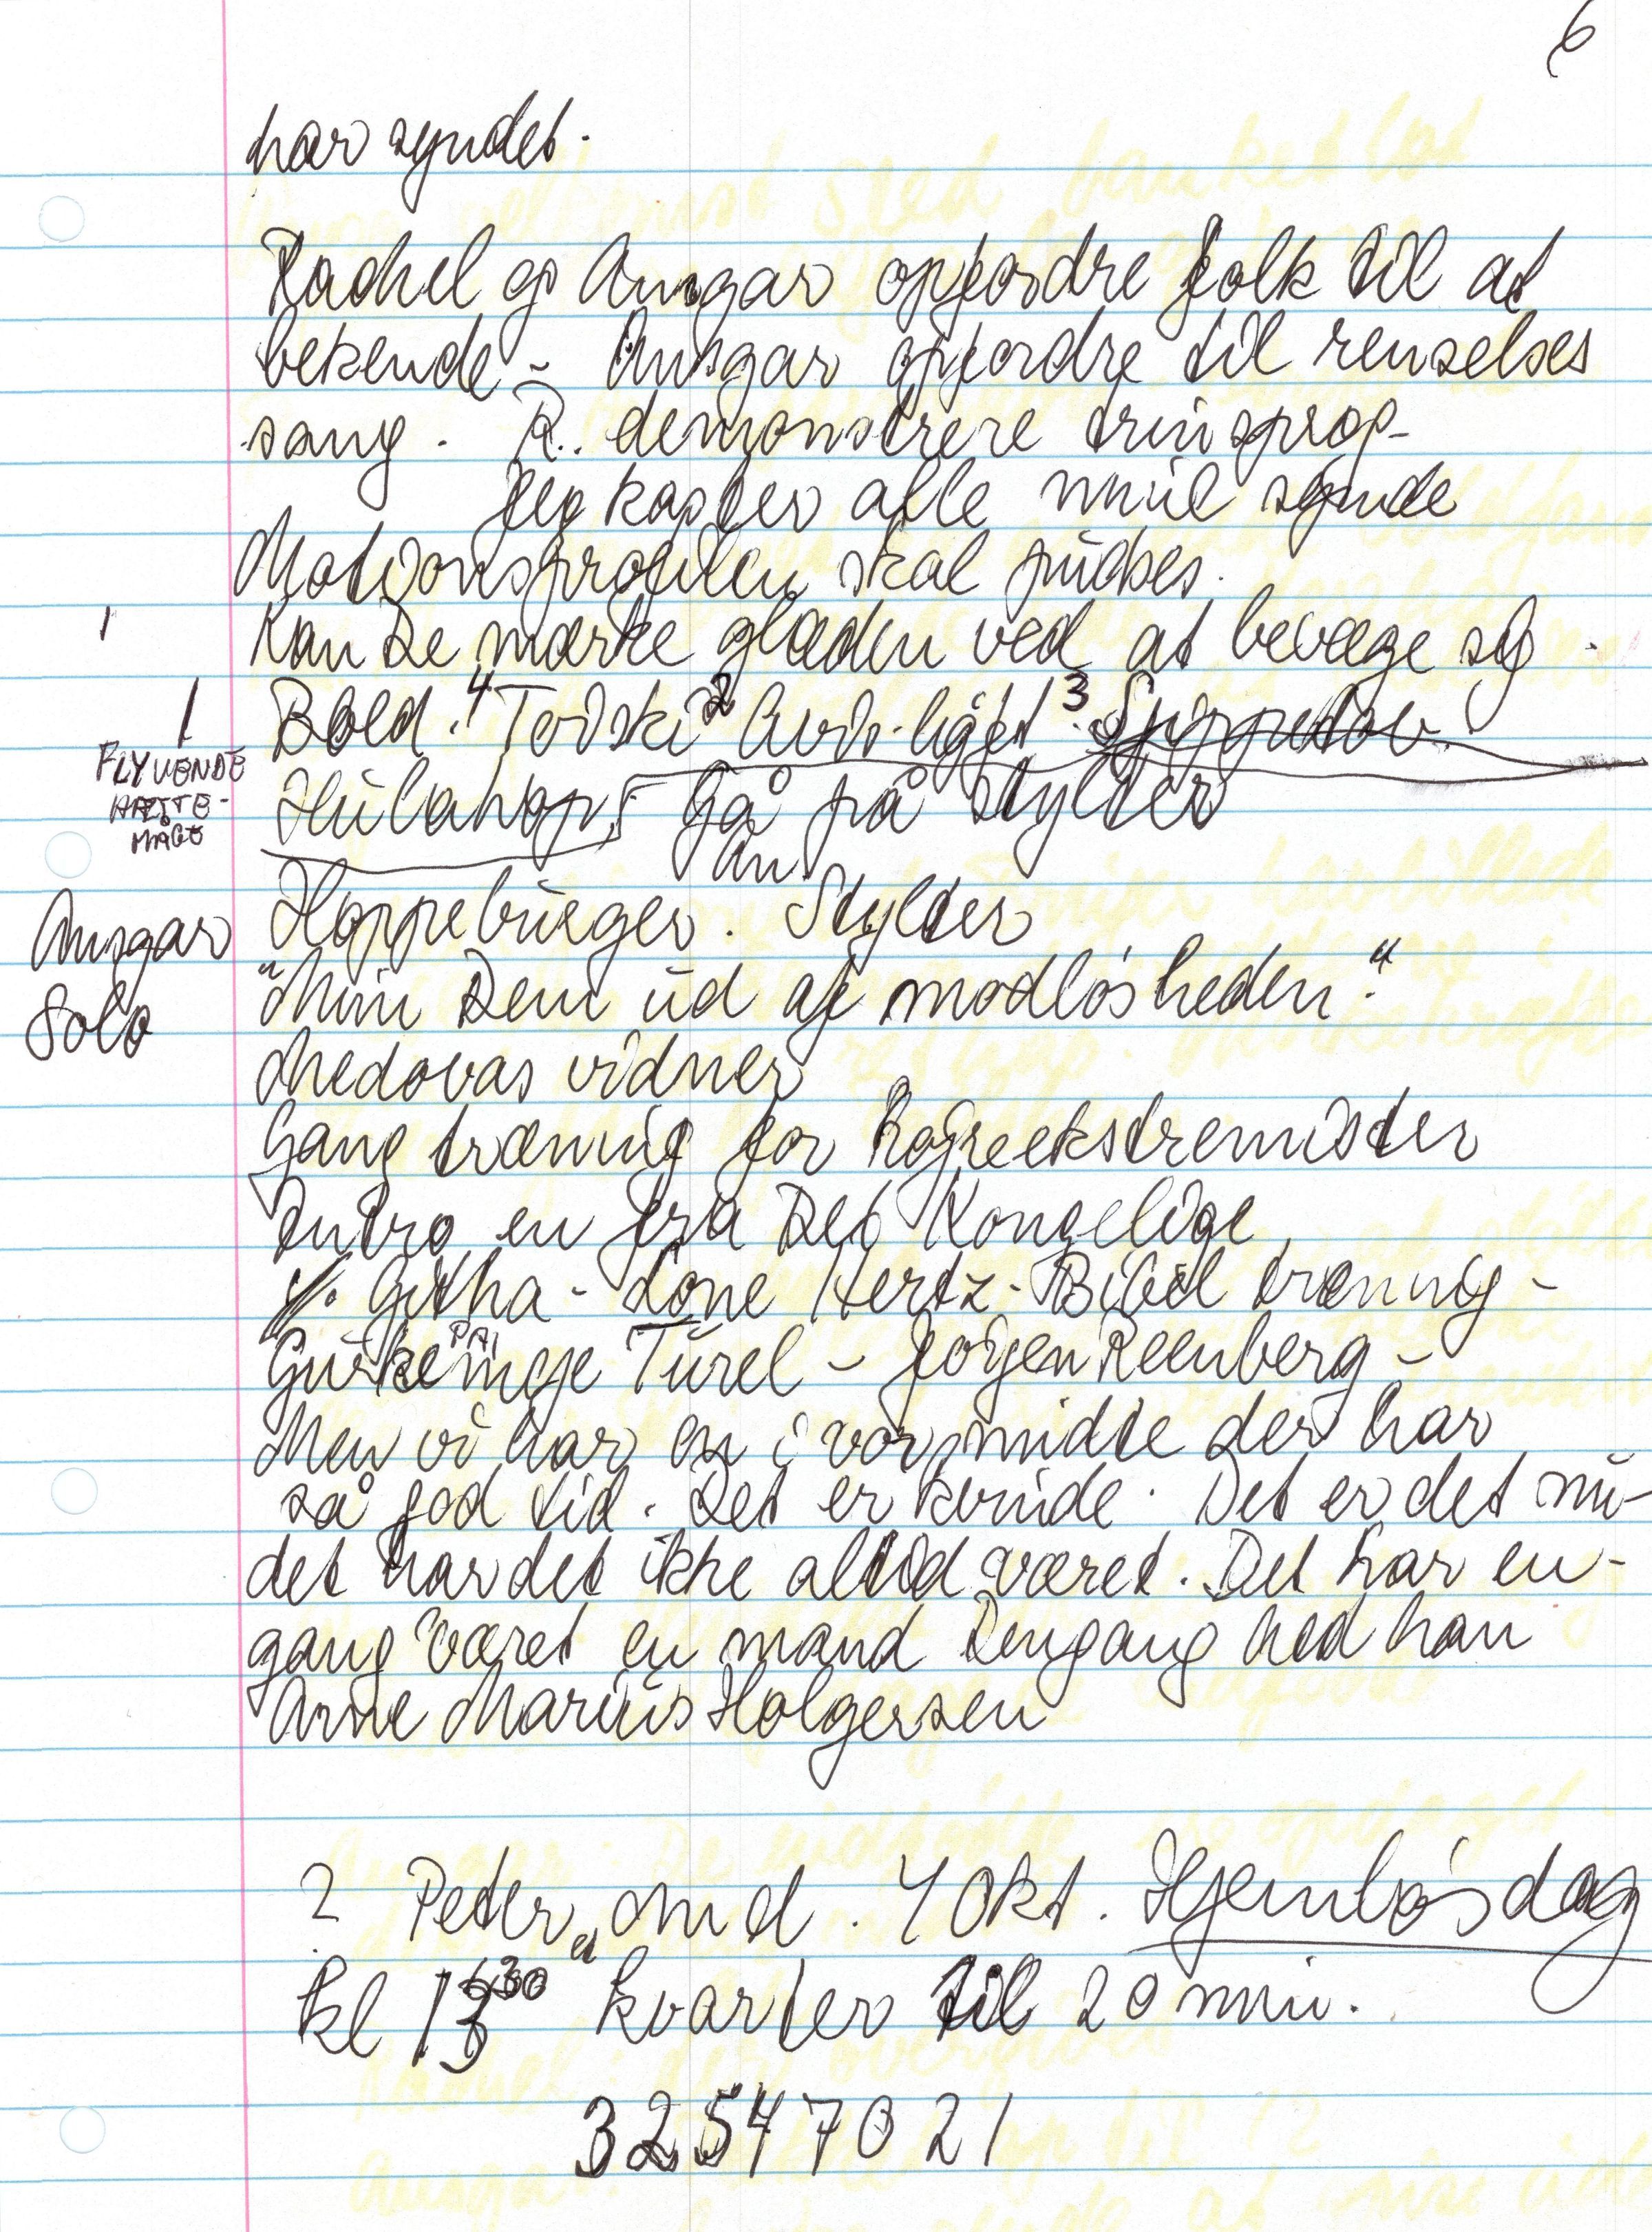 6
har syndet.
Rachel og Ansgar opfordre folk til at
bekende - Ansgar opfordre til renselses
sang. R. demonstrere trinsprog-
Jeg kaster alle mine synde
Motionsprofilen skal pudses.
Kan De mærke glæden ved at bevæge sig.
Bold. 4 Torski 2 3
FLYVENDE
Hulahop 5 Gå på stylter
An.
Hoppeburger. Stylter
Ansgar
Solo
"Min Dem ud af modløsheden."
Medovas vidner
Gang træning for Højreekstremister
Intro en fra Det Kongelige
Githa - Lone Hertz - Bibel træning -
Gurkemeje Turel - Jørgen Reenberg -
Men vi har en i vor midte der har
så god tid. Det er kvinde. Det er det nu -
det har det ikke altid været. Det har en-
gang været en mand Dengang hed han
Arne Marius Holgersen
? Peter, 4 Okt. Hjemløsdag
kl 13 30 kvarter til 20 min.
32547021